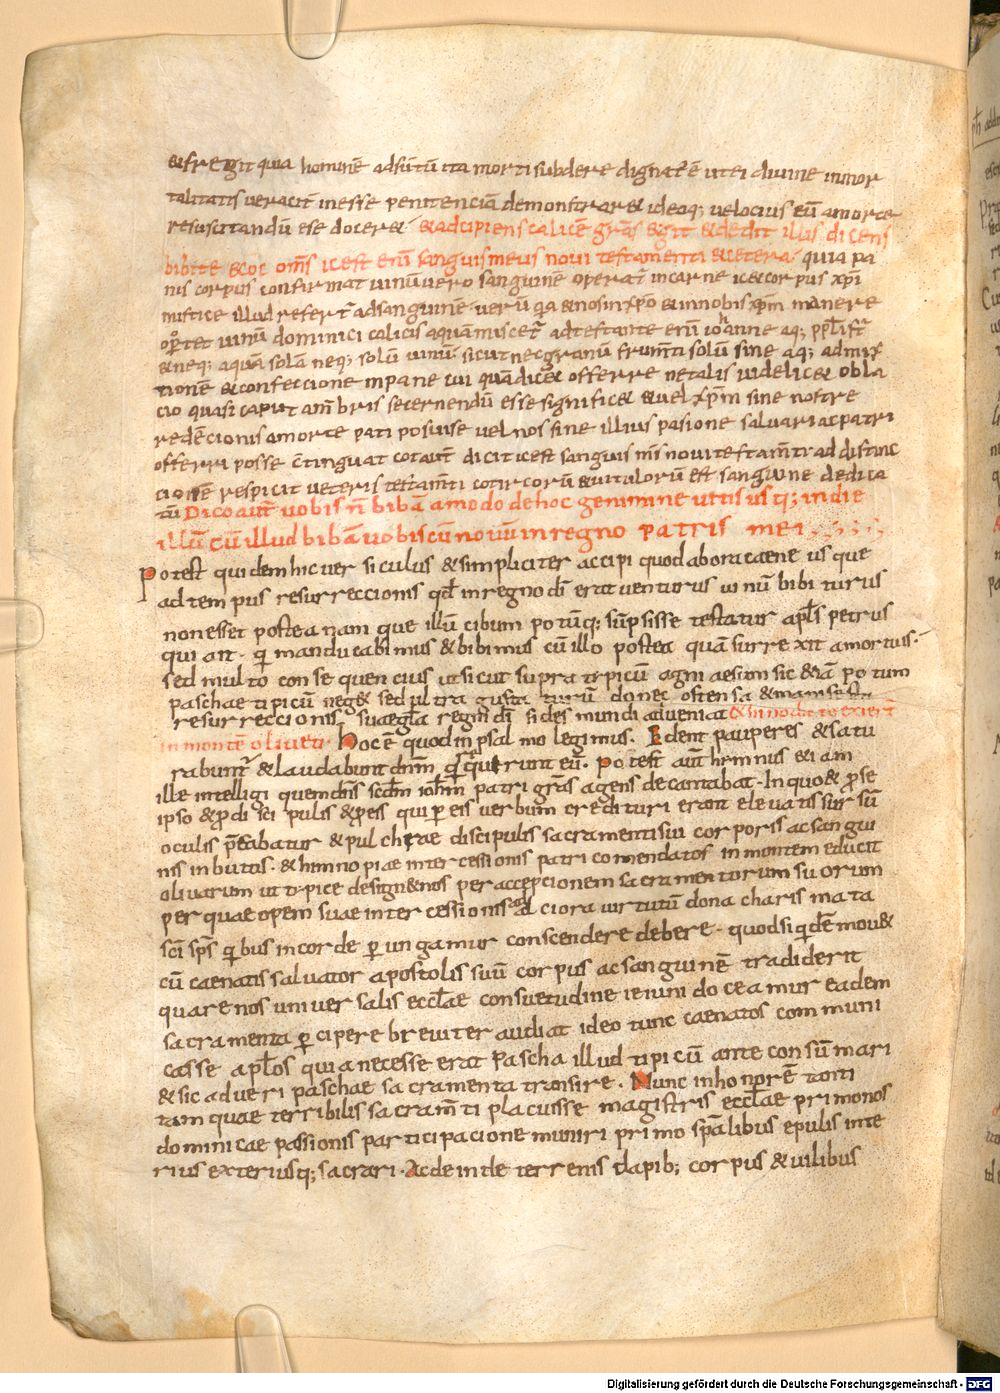 & fregit quia hominē adsūtū ita morti subdere dignat' ē ut ei divine inmor
talitatis veracit inesse penitenciā demonstrar& ideoq; velocius eū a morte
resuscitandū ese docere& & adcipiens calicē grās egit & dedit illis dicens
bibite ex oc om̄s ic est enī sanguis meus novi testamenti & cetera. quia pa
nis corpus confirmat vinū vero sanguinē operat' in carne ic & corpus xp̄i
mistice illud refert' ad sanguinē. verū q̄a & nos in xp̄o & in nobis xp̄m manere
oportet vinū dominici calicis aquā miscet' adtestante enī iohanne aq; pp̄li st'
& neq; aquā solā neq; solū vinū. sicut nec granū frum̄ti solū sine aq; admix
tionē & confeccione in pane cui quā dic& offerre ne talis videlic& obla
cio quasi caput a m̄bris secernendū esse signific& & vel xp̄m sine nostre
redēcionis amore pati posuise vel nos sine illius pasione salvari ac patri
offerri posse c̄tinguat cot aut̄ dicit ic est sanguis m̄s novi testam̄ti ad distinc
cionē respicit veteris testam̄ti cot ircorū & vitulorū est sanguine dedica
tū Dico aut̄ vobis n̄ bibā amodo de hoc genimine vitis usq; in die
illū cū illud bibā vobiscū novum in regno patris mei
Potest quidem hic ver siculus & simpliciter accipi quod ab ora caene usque
ad tempus resurreccionis qd̄ in regno dī erat venturus vinū bibiturus
non esset postea nam que illū cibum potūq; sūpsisse testatur apl̄s petrus
qui ait. q̄ manducabimus & bibimus cū illo postea quā surrexit a mortuis.
sed multo consequencius ut sicut supra tipicū agni aesum sic & iā potum
paschae tipicū neg& sed ultra gustaturū donec ostensa & manifesta
resurreccionis suae gl̄a regni dī fides mundi adveniat & himno dicto exier̄t
in montē oliveti. Hoc ē quod in psalmo legimus. Edent pauperes & satu
rabunt' & laudabunt dn̄m q̄ requirunt eū. Potest aut̄ himnus etiam
ille intelligi quem dn̄s scd̄m ioh̄m patri grās agens decantabat. In quo & p̄ se
ipso & p̄ discipulis & p̄ eis qui p̄ eis verbum credituri erant elevatis sursū
oculis p̄cabatur & pulchrae discipulis sacramentis sui corporis ac sangui
nis inbutos. & himno piae intercessionis patri comendatos in montem educit
olivarum ut tipice design& nos per accepcionem sacramentorum suorum
per quae opem suae intercessionis ad alciora virtutū dona charismata
sc̄i sp̄s q̄bus in corde p̄ungamur conscendere debere. quod si q̄dē mov&
cū caenatis salvator apostolis suū corpus ac sanguinē tradiderit
quare nos universalis eccl̄ae consuetudine ieiuni doceamur eadem
sacramenta p̄cipere breviter audiat ideo tunc caenatos communi
casse apl̄os quia necesse erat pascha illud tipicū ante consūmari
& sic ad veri paschae sacramenta transire. Nunc in honorē tanti
tam quae terribilis sacram̄ti placuisse magistris eccl̄ae primo nos
dominicae passionis participacione muniri primo sp̄alibus epulis inte
rius exteriusq; sacrari. Ac deinde terrenis dapib; corpus & vilibus
Digitalisierung gefördert durch die Deutsche Forschungsgemeinschaft - DFG